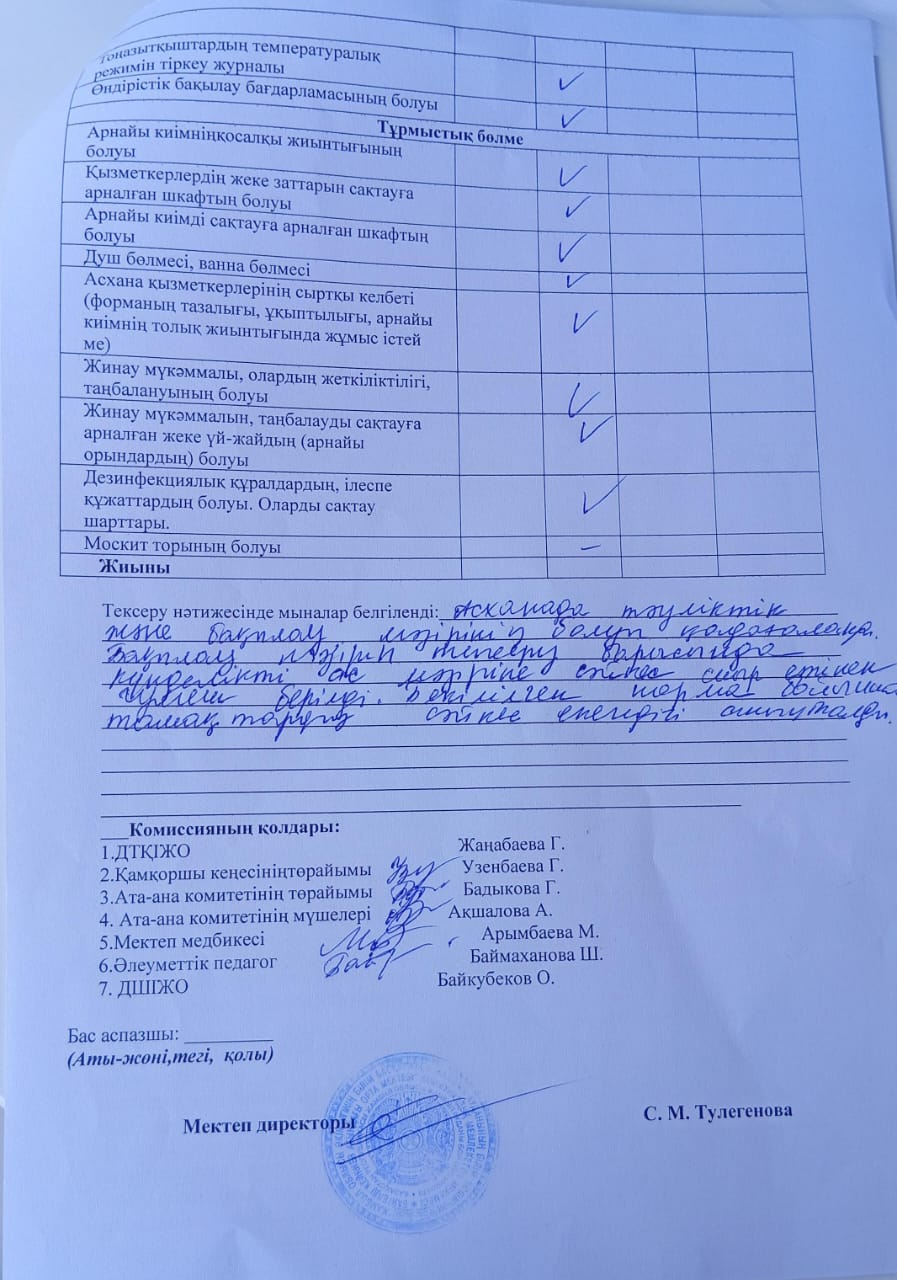 Тоңазытқыштардың температуралық
режимін тіркеу журналы
Өндірістік бақылау бағдарламасының болуы
Тұрмыстық бөлме
Арнайы киімніңқосалқы жиынтығының
болуы
Қызметкерлердің жеке заттарын сақтауға
арналған шкафтың болуы
Арнайы киімді сақтауға арналған шкафтың
болуы
Душ бөлмесі, ванна бөлмесі
Асхана қызметкерлерінің сыртқы келбеті
(форманың тазалығы, ұқыптылығы, арнайы
киімнің толық жиынтығында жұмыс істей
ме)
Жинау мүкәммалы, олардың жеткіліктілігі,
таңбалануының болуы
Жинау мүкәммалын, таңбалауды сақтауға
арналған жеке үй-жайдың (арнайы
орындардың) болуы
Дезинфекциялық құралдардың, ілеспе
құжаттардың болуы. Оларды сақтау
шарттары.
Москит торының болуы –
Жиыны
Тексеру нәтижесінде мыналар белгіленді: Асханада тәуліктік
және бақылау мәзірінің болуы қадағаланды.
Бақылау мәзірін тексеру барысында
күнделікті ас мәзіріне сәйкес сыр етінен
берілді. норма бойынша
тамақтардың сәйкес екендігі анықталды.
Комиссияның қолдары:
1.ДТҚІЖО Жаңабаева Г.
2.Қамқоршы кеңесініңтөрайымы Узенбаева Г.
3.Ата-ана комитетінің төрайымы Бадыкова Г.
4. Ата-ана комитетінің мүшелері Ақшалова А.
5.Мектеп медбикесі Арымбаева М.
6.Әлеуметтік педагог Баймаханова Ш.
7. ДШІЖО Байкубеков О.
Бас аспазшы:
(Аты-жөні,тегі, қолы)
Мектеп директоры С. М. Тулегенова